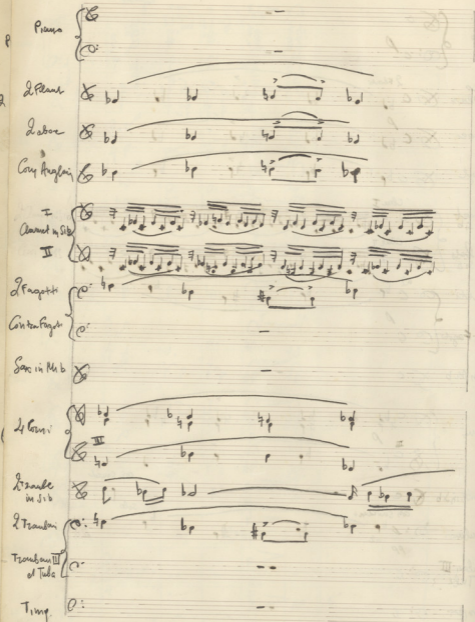 Piano
2 Flauti
2 oboe
Corn Anglais
I
Clarinet in Sib
II
2 Fagotti
Contra Fagott
Sax in Mib
4 Corni
III
2 Trombe
in Sib
2 Tromboni
Trombon III
et Tuba
Timp.